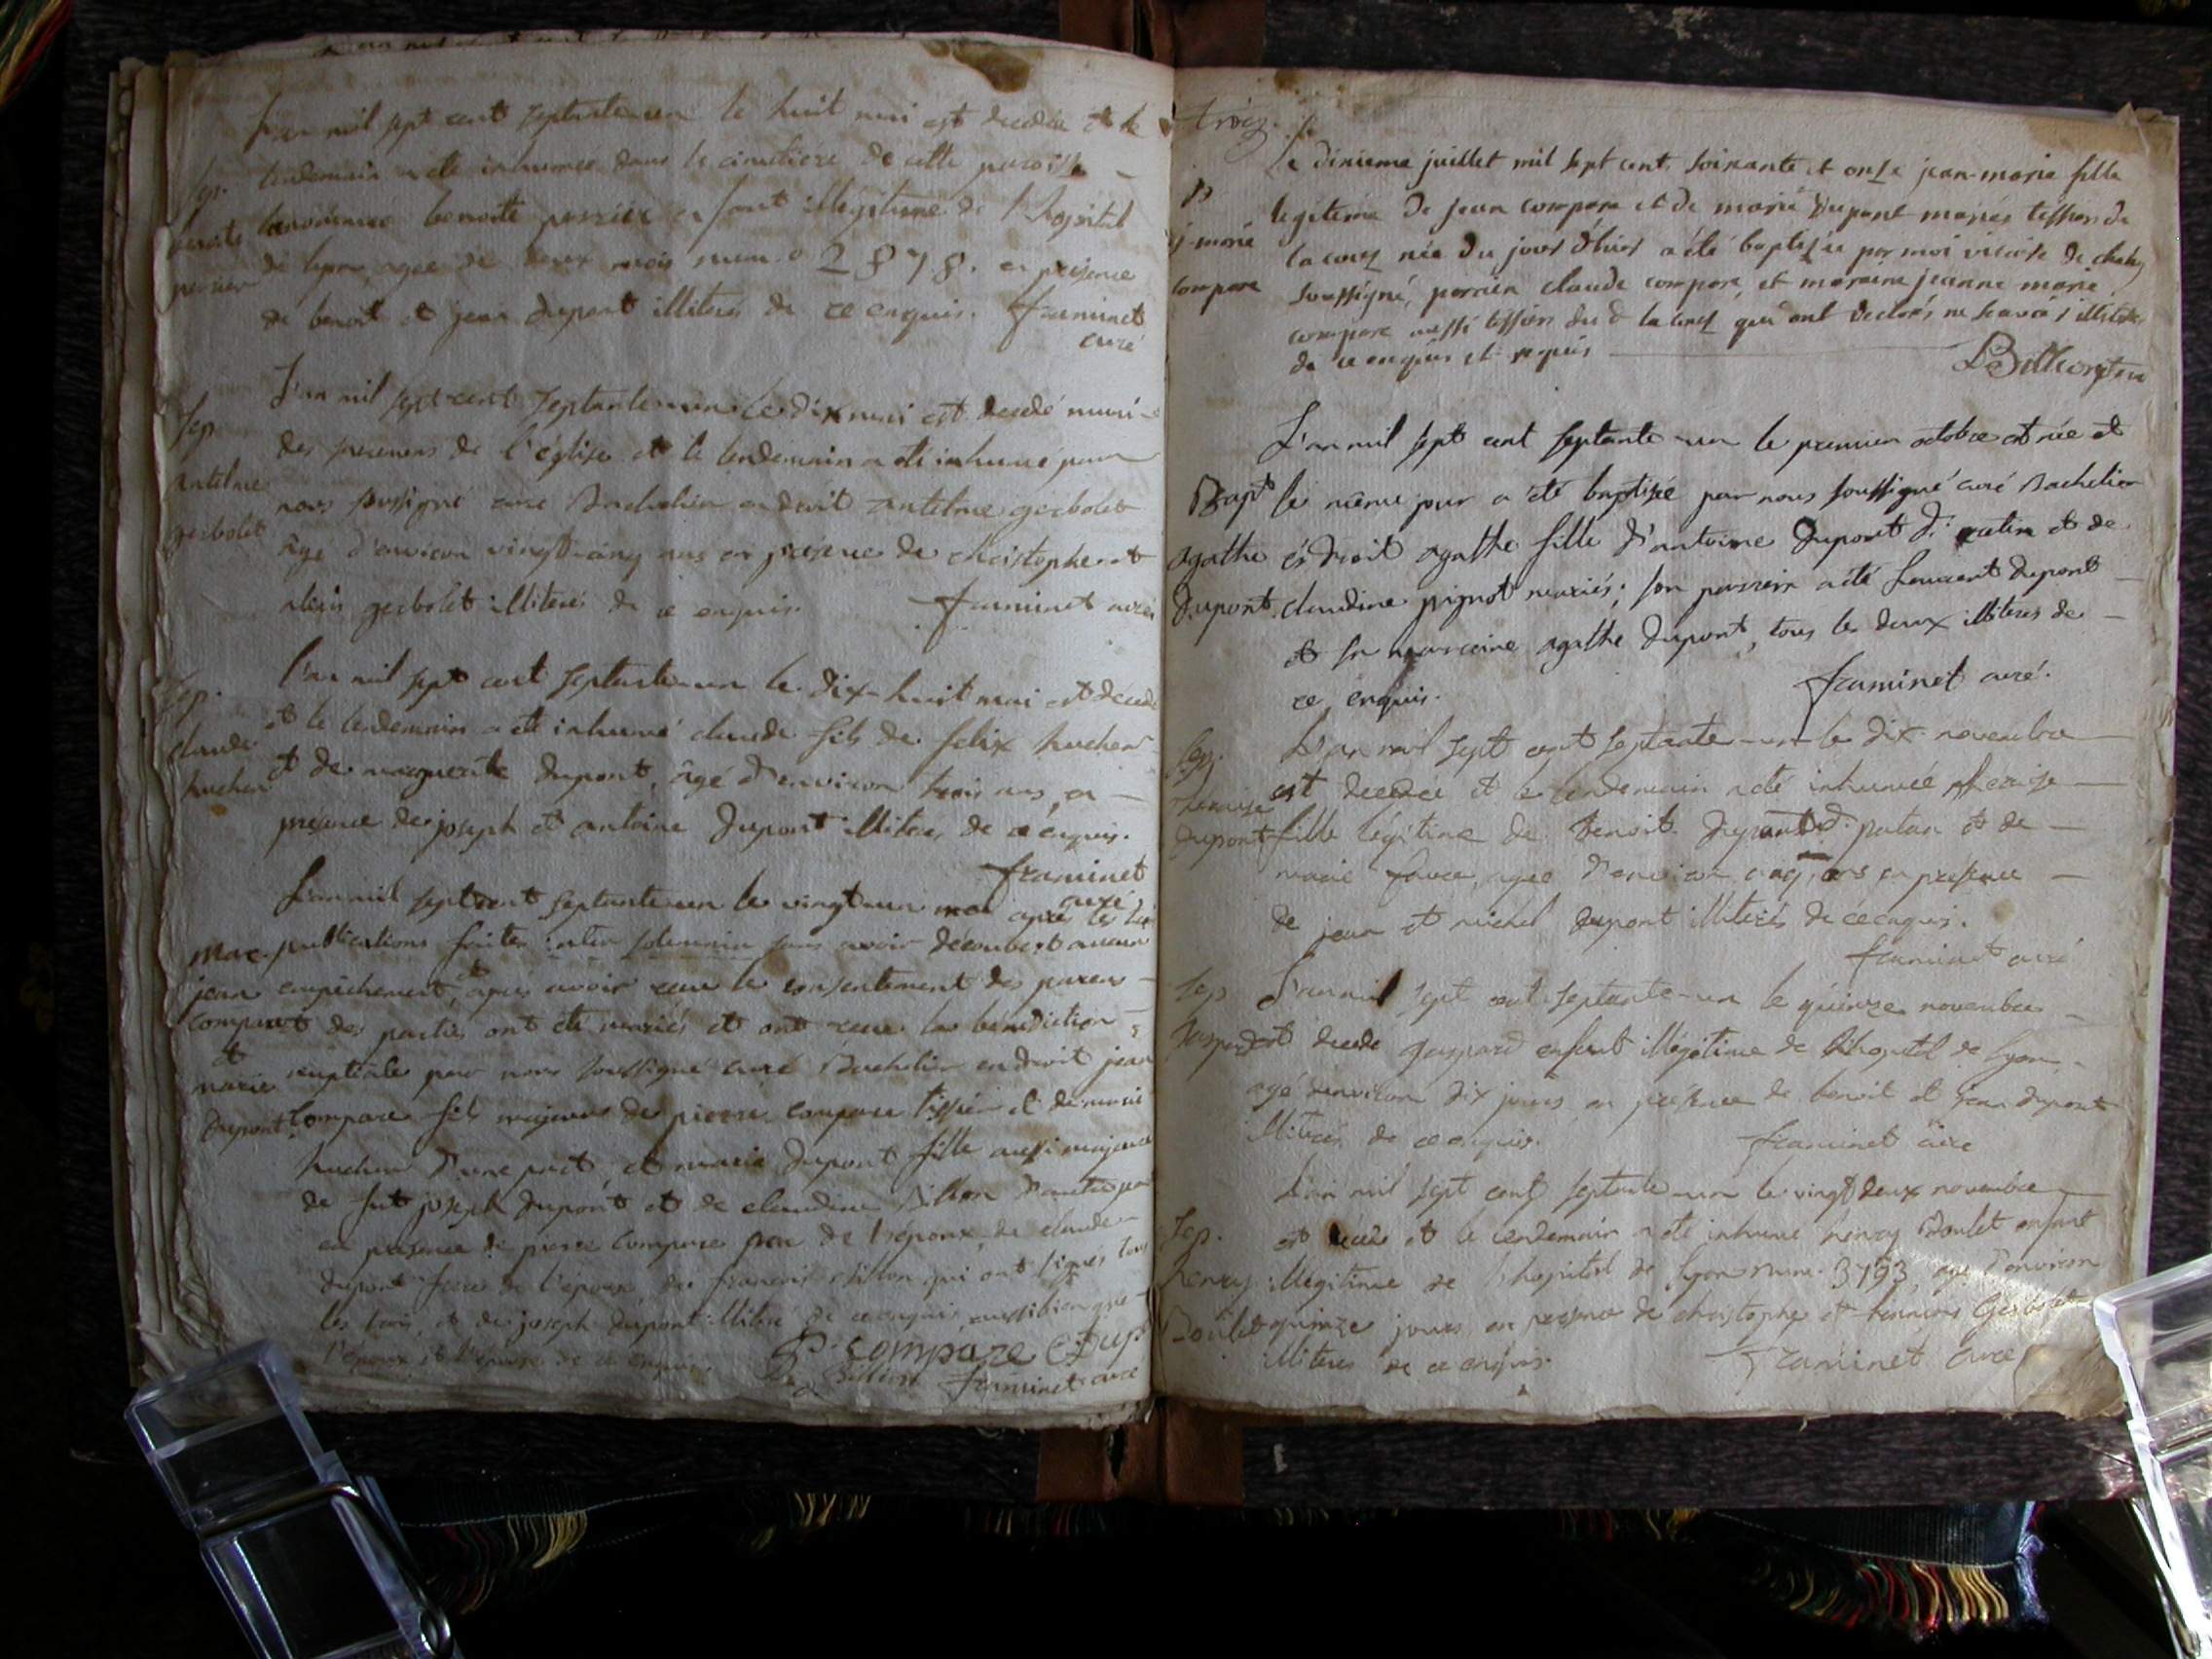 L'an mil sept cent septante-un le huit mai est decedée et le
Sep. lendemain a été inhumée dans le cimetiere de cette paroisse
benoite perrier enfant illégitime de l'hopital
perrier de lyon, agée de deux mois num.o 2878. en présence
de benoit et jean dupont illiterés de ce enquis. framinet
curé
L'an mil sept cent septante-un le dix mai est decedé muni
Sep des sacremens de l'église et le lendemain a été inhumé par
antelme nous soussigné curé Bachelier en droit antelme gerbolet
gerbolet âgé d'environ vingt-cinq ans en présence de christophe et
alexis gerbolet illiterés de ce enquis. framinet curé
L'an mil sept cent septante-un le dix-huit mai est décédé
Sep. et le lendemain a été inhumé claude fils de felix hucher
claude et de marguerite dupont, âgé d'environ trois ans, en
hucher présence de joseph et antoine dupont illiterés de ce enquis.
framinet
curé
L'an mil sept cent septante-un le vingt-un mai après les
Mar. publications faites inter solemnia sans avoir découvert aucun
jean empêchement, et après avoir receu le consentement des parens
compare des parties ont été mariés et ont receu la bénédiction
et nuptiale par nous soussigné curé Bachelier en droit jean
marie compare fils majeur de pierre compare tissier et de marie
dupont hucher d'une part, et marie dupont fille aussi majeure
de fut joseph dupont et de claudine Billion d'autre part
en présence de pierre compare pere de l'époux, de claude
dupont frere de l'épouse de francois billion qui ont signés tous
les trois, et de joseph dupont illiteré de ce enquis aussi bien que
l'époux et l'épouse de ce enquis. P. compare C Dup
Billion framinet curé
troiz.
Le dixieme juillet mil sept cent soixante et onze jean-marie fille
B legiteme de jean compare et de marie Dupont mariés tessiers de
j-marie la couz née du jour d'hier a été baptisée par moi vicaire de
compare soussigné, parrein claude compare, et maraine jeanne marie
compare aussi tessiers du d la couz qui ont declarés ne scavoir illiterés
de ce enquis et requis
L'an mil sept cent septante-un le premier octobre est née et
Bapt le même jour a été baptisée par nous soussigné curé Bachelier
agathe ès droit agathe fille d'antoine Dupont d. et de
dupont. claudine pignot mariés; son parrein a été Laurent dupont
et sa marreine agathe dupont, tous les deux illiterés de
ce enquis. framinet curé.
Sep. L'an mil sept cent septante-un le dix novembre
est decedée et le lendemain a été inhumée therèse
therèse
dupont fille légitime de benoit dupont d. patan et de
marie favre, agée d'environ cinq ans en présence
de jean et michel dupont illiterés de ce enquis.
framinet curé
Sep L'an mil sept cent septante-un le quinze novembre
gaspard est decedé gaspard enfant illégitime de l'hopital de lyon,
agé d'environ dix jours, en présence de benoit et jean dupont
illiterés de ce enquis. framinet curé
L'an mil sept cent septante-un le vingt deux novembre
Sep. est décédé et le lendemain a été inhumé henry Boulet enfant
henry illégitime de l'hopital de lyon num. 3793, agé d'environ
Boulet quinze jours, en présence de christophe et francois Gerbolet
illiterés de ce enquis. framinet curé